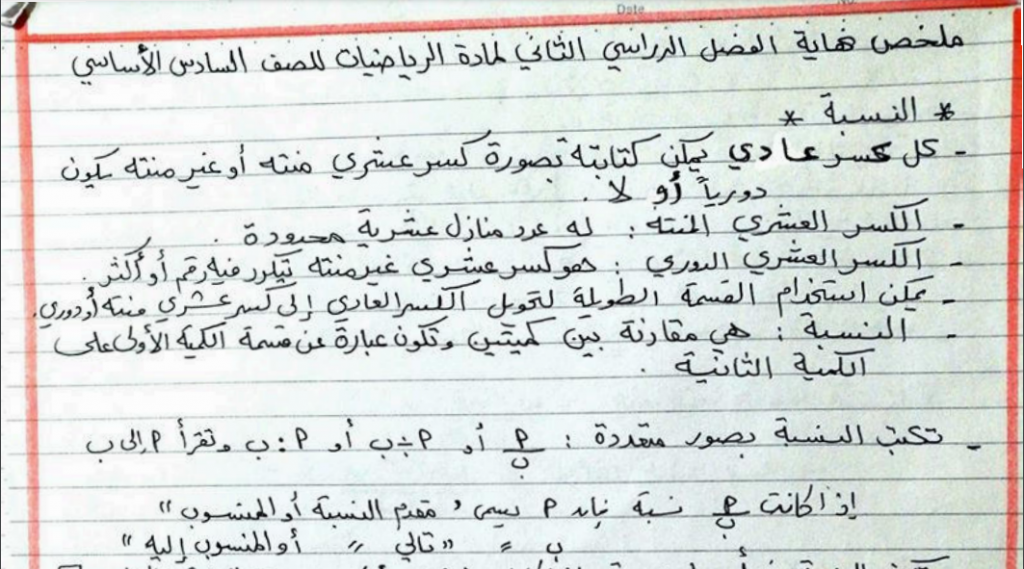 Date
ملخص نهاية الفصل الدراسي الثاني لمادة الرياضيات للصف السادس الأساسي
* النسبة *
- كل كسر عادي يمكن كتابته بصورة كسر عشري منته أو غير منته يكون
دورياً أو لا .
- الكسر العشري المنته : له عدد منازل عشرية محدودة .
- الكسر العشري الدوري : هو كسر عشري غير منته يتكرر فيه رقم أو أكثر .
- يمكن استخدام القسمة الطويلة لتحويل الكسر العادي إلى كسر عشري منته أو دوري .
- النسبة : هي مقارنة بين كميتين وتكون عبارة عن قسمة الكمية الأولى على
الكمية الثانية .
- تكتب النسبة بصور متعددة : أ/ب أو أ ÷ ب أو أ : ب وتقرأ أ إلى ب
إذا كانت أ/ب نسبة فإن أ يسمى " مقدم النسبة أو المنسوب "
ب = " تالي = أو المنسوب إليه "